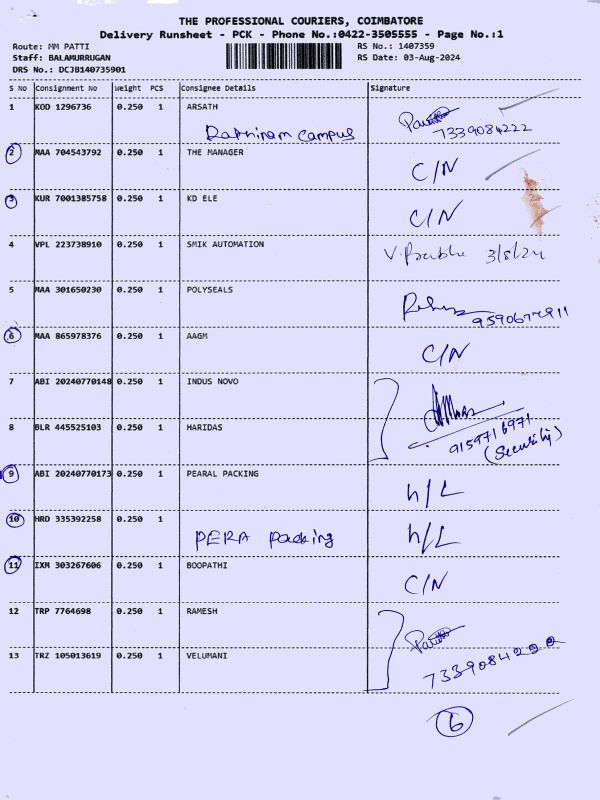 THE PROFESSIONAL COURIERS, COIMBATORE
Delivery Runsheet - PCK - Phone No.:0422-3505555 - Page No.:1
Route: MM PATTI
RS No.: 1407359
Staff: BALAMURRUGAN
RS Date: 03-Aug-2024
DRS No.: DCJB140735901
S No Consignment No Weight PCS Consignee Details Signature
1 KOD 1296736 0.250 1 ARSATH
Rathinam campus 7339084222
2 MAA 704543792 0.250 1 THE MANAGER C/N
3 KUR 7001385758 0.250 1 KD ELE C/N
4 VPL 223738910 0.250 1 SMIK AUTOMATION V. Prabha 3/8/24
5 MAA 301650230 0.250 1 POLYSEALS
6 MAA 865978376 0.250 1 AAGM C/N
7 ABI 20240770148 0.250 1 INDUS NOVO
8 BLR 445525103 0.250 1 HARIDAS 9159716971
(Security)
9 ABI 20240770173 0.250 1 PEARAL PACKING h/L
10 HRD 335392258 0.250 1
PERA packing h/L
11 IXM 303267606 0.250 1 BOOPATHI C/N
12 TRP 7764698 0.250 1 RAMESH
13 TRZ 105013619 0.250 1 VELUMANI
6